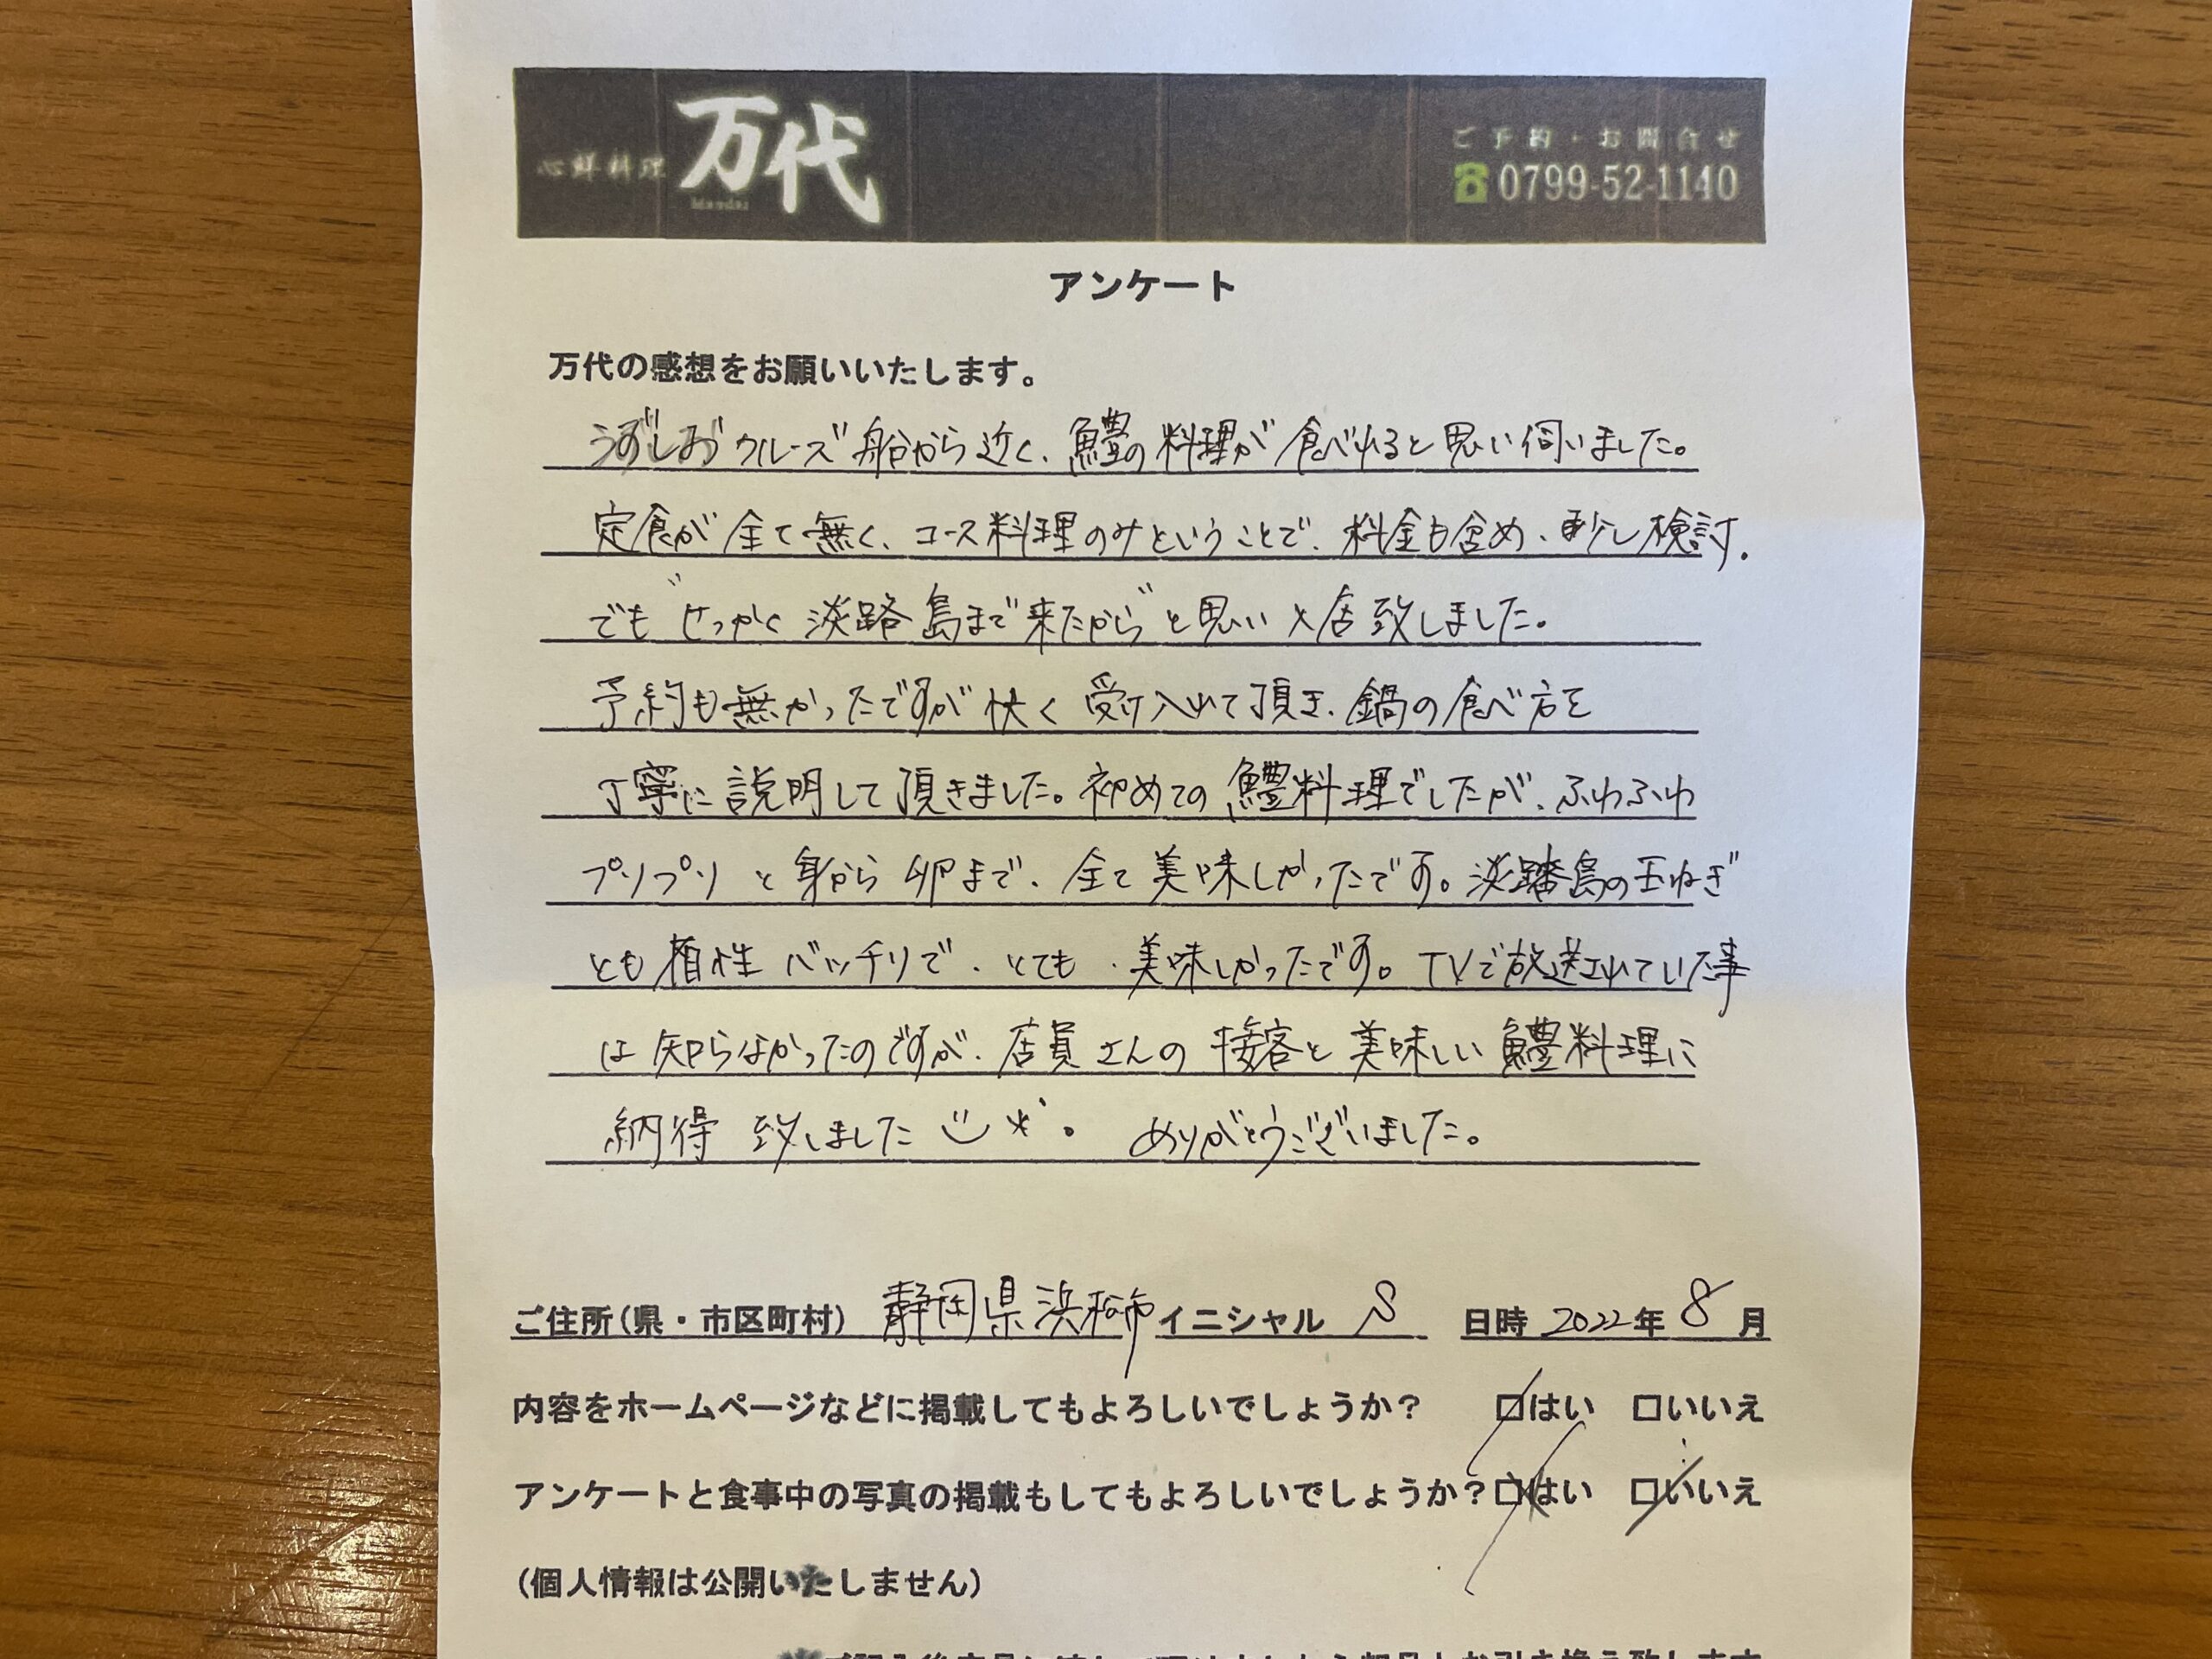 心鮮料理 万代
ご予約・お問合せ
☎0799-52-1140
アンケート
万代の感想をお願いいたします。
うずしおクルーズ船から近く、鱧の料理が食べれると思い伺いました。
定食が全て無く、コース料理のみということで、料金も含め、少し検討。
でも"せっかく淡路島まで来たから"と思い入店致しました。
予約も無かったですが快く受け入れて頂き、鍋の食べ方を
丁寧に説明して頂きました。初めての鱧料理でしたが、ふわふわ
プリプリと身から卵まで、全て美味しかったです。淡路島の玉ねぎ
とも相性バッチリで、とても美味しかったです。TVで放送されていた事
は知らなかったのですが、店員さんの接客と美味しい鱧料理に
納得致しました。ありがとうございました。
ご住所(県・市区町村) 静岡県浜松市 イニシャル S 日時 2022年 8 月
内容をホームページなどに掲載してもよろしいでしょうか? □はい □いいえ
アンケートと食事中の写真の掲載もしてもよろしいでしょうか? □はい □いいえ
(個人情報は公開いたしません)